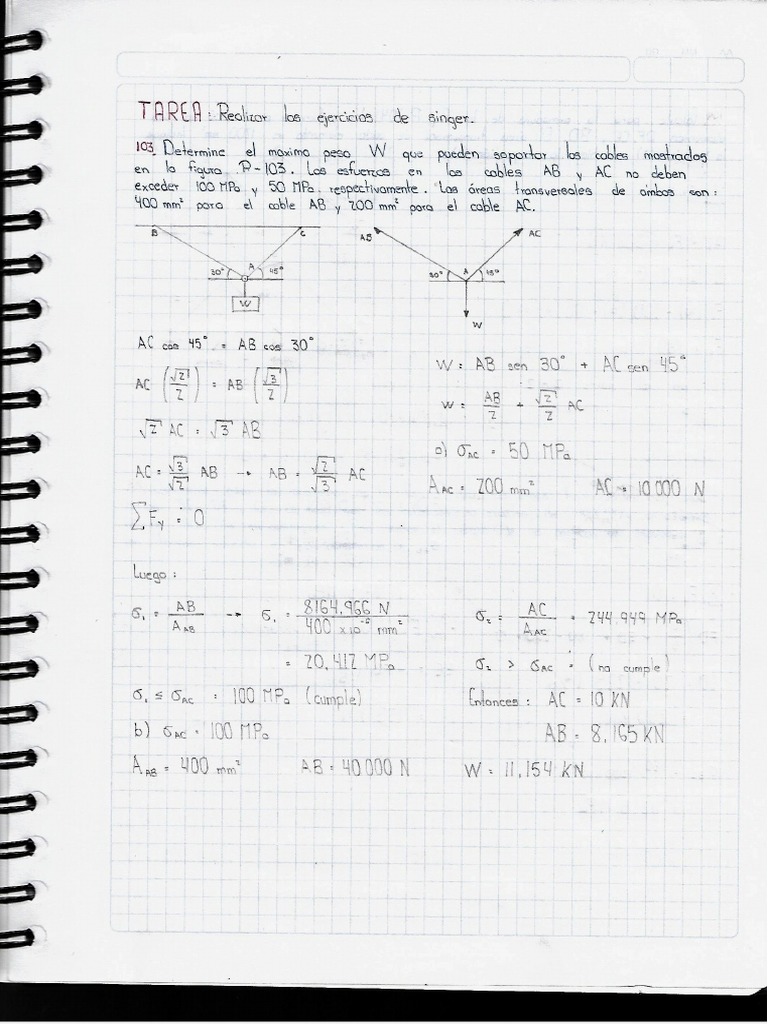 TAREA: Realizar los ejercicios de singer.
103. Determine el maximo peso W que pueden soportar los cables mostrados
en la figura P-103. Los esfuerzos en los cables AB y AC no deben
exceder 100 MPa y 50 MPa. respectivamente. Las áreas transversales de ambos son:
400 mm² para el cable AB y 200 mm² para el cable AC.
B C AB AC
30° A 45° 30° A 45°
W
W
AC cos 45° = AB cos 30°
AC (√2/2) = AB (√3/2)
√2 AC = √3 AB
AC = √3/√2 AB → AB = √2/√3 AC
∑Fy = 0
W = AB sen 30° + AC sen 45°
W = AB/2 + √2/2 AC
a) σAC = 50 MPa
AAC = 200 mm² AC = 10.000 N
Luego:
σ₁ = AB/AAB → σ₁ = 8164.966 N / 400 x10⁻⁶ mm²
= 20,412 MPa
σ₁ ≤ σAC = 100 MPa (cumple)
b) σAC = 100 MPa
AAB = 400 mm² AB = 40.000 N
σ₂ = AC/AAC = 244.949 MPa
σ₂ > σAC = (no cumple)
Entonces: AC = 10 KN
AB = 8,165 KN
W = 11,154 KN